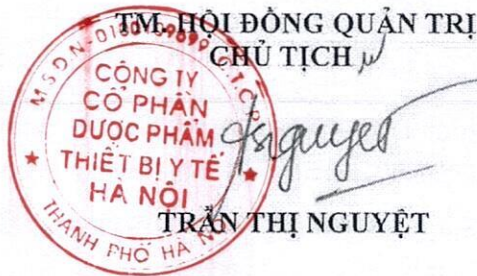 TM. HỘI ĐỒNG QUẢN TRỊ
CHỦ TỊCH
CÔNG TY
CỔ PHẦN
DƯỢC PHẨM
THIẾT BỊ Y TẾ
HÀ NỘI
THÀNH PHỐ HÀ
Nguyet
TRẦN THỊ NGUYỆT